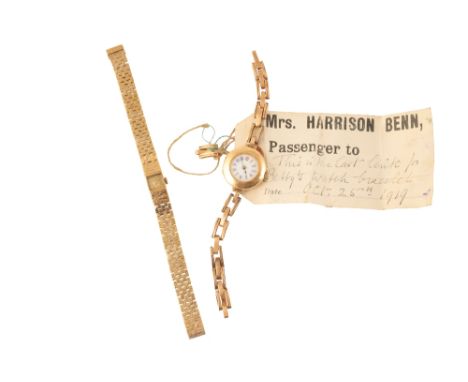 Mrs. HARRISON BENN,
Passenger to
This is the last link for
Betty's watch bracelet
Date Oct. 25TH 1919